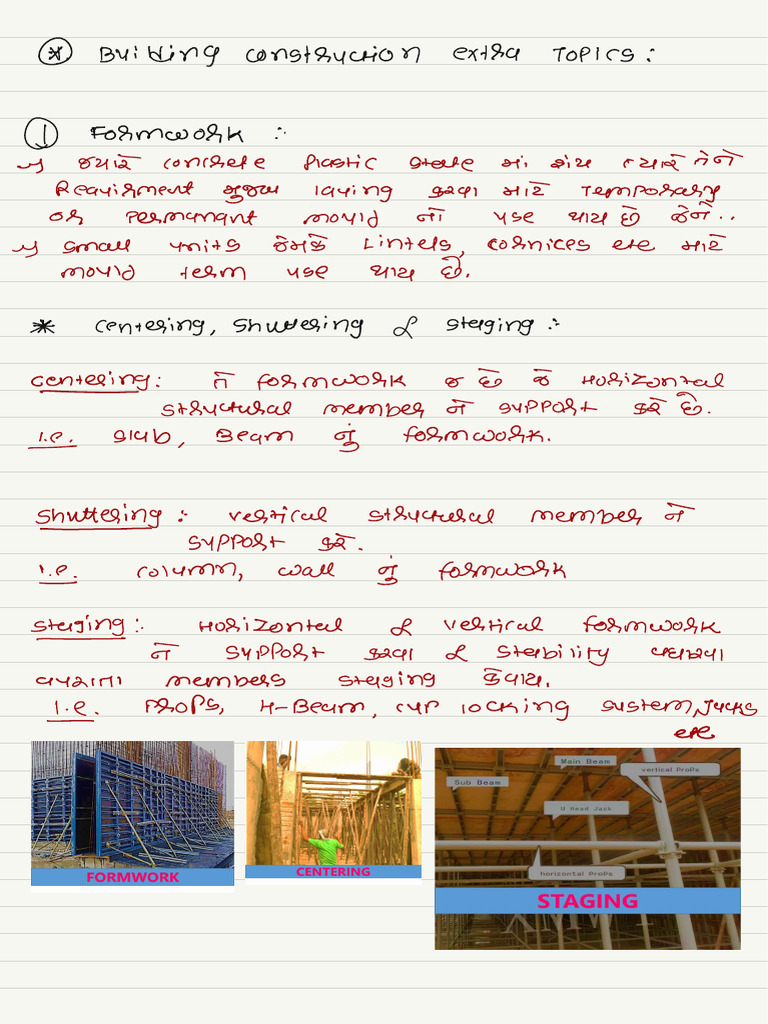 * Building construction extra TOPICS :
1 Formwork :-
→ જ્યારે concrete Plastic state માં હોય ત્યારે તેને
Requirment મુજબ laying કરવા માટે Temporary
or Permanant mould નો use થાય છે જેને..
→ small units જેમકે Lintels, cornices etc માટે
mould term use થાય છે.
* centering, shuttering & staging :-
centering: તે formwork જ છે જે Horizontal
structural member ને support કરે છે.
i.e. slab, Beam નું formwork.
shuttering :- vertical structural member ને
support કરે.
i.e. column, wall નું formwork
staging :- Horizontal & vertical formwork
ને support કરવા & stability વધારવા
વપરાતા members staging કેવાય.
i.e. Props, H-Beam, cup locking system, Jacks
etc
FORMWORK
CENTERING
Main Beam
vertical ProPs
Sub Beam
U head Jack
horizontal ProPs
STAGING